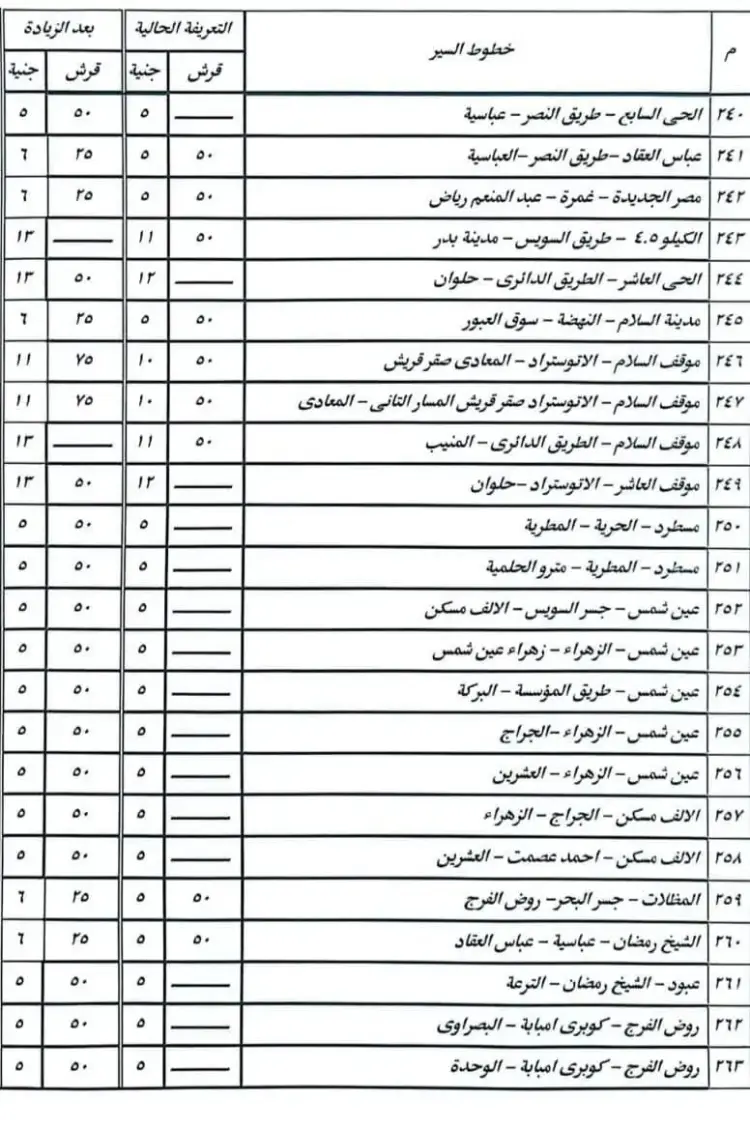 م خطوط السير التعريفة الحالية بعد الزيادة
قرش جنية قرش جنية
٢٤٠ الحى السابع - طريق النصر - عباسية —— ٥ ٥٠ ٥
٢٤١ عباس العقاد -طريق النصر -العباسية ٥٠ ٥ ٢٥ ٦
٢٤٢ مصر الجديدة - غمرة - عبد المنعم رياض ٥٠ ٥ ٢٥ ٦
٢٤٣ الكيلو ٤.٥ - طريق السويس - مدينة بدر ٥٠ ١١ —— ١٣
٢٤٤ الحى العاشر - الطريق الدائرى - حلوان —— ١٢ ٥٠ ١٣
٢٤٥ مدينة السلام - النهضة - سوق العبور ٥٠ ٥ ٢٥ ٦
٢٤٦ موقف السلام - الاتوستراد - المعادى صقر قريش ٥٠ ١٠ ٧٥ ١١
٢٤٧ موقف السلام - الاتوستراد صقر قريش المسار الثانى - المعادى ٥٠ ١٠ ٧٥ ١١
٢٤٨ موقف السلام - الطريق الدائرى - المنيب ٥٠ ١١ —— ١٣
٢٤٩ موقف العاشر - الاتوستراد -حلوان —— ١٢ ٥٠ ١٣
٢٥٠ مسطرد - الحرية - المطرية —— ٥ ٥٠ ٥
٢٥١ مسطرد - المطرية - مترو الحلمية —— ٥ ٥٠ ٥
٢٥٢ عين شمس - جسر السويس - الالف مسكن —— ٥ ٥٠ ٥
٢٥٣ عين شمس - الزهراء - زهراء عين شمس —— ٥ ٥٠ ٥
٢٥٤ عين شمس - طريق المؤسسة - البركة —— ٥ ٥٠ ٥
٢٥٥ عين شمس - الزهراء -الجراج —— ٥ ٥٠ ٥
٢٥٦ عين شمس - الزهراء - العشرين —— ٥ ٥٠ ٥
٢٥٧ الالف مسكن - الجراج - الزهراء —— ٥ ٥٠ ٥
٢٥٨ الالف مسكن - احمد عصمت - العشرين —— ٥ ٥٠ ٥
٢٥٩ المظلات - جسر البحر- روض الفرج ٥٠ ٥ ٢٥ ٦
٢٦٠ الشيخ رمضان - عباسية - عباس العقاد ٥٠ ٥ ٢٥ ٦
٢٦١ عبود - الشيخ رمضان - الترعة —— ٥ ٥٠ ٥
٢٦٢ روض الفرج - كوبرى امبابة - البصراوى —— ٥ ٥٠ ٥
٢٦٣ روض الفرج - كوبرى امبابة - الوحدة —— ٥ ٥٠ ٥